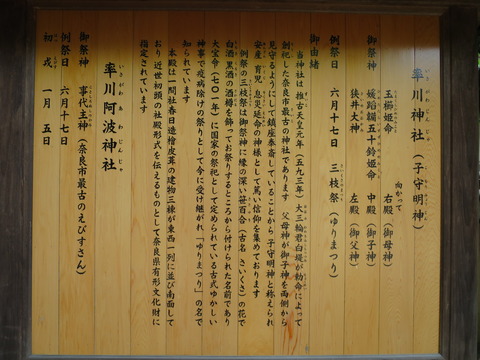 率川神社（子守明神）
いさがわじんじゃ
向かって
御祭神 玉櫛姫命 右殿（御母神）
媛蹈韛五十鈴姫命 中殿（御子神）
狭井大神 左殿（御父神）
例祭日 六月十七日 三枝祭（ゆりまつり）
御由緒
当神社は推古天皇元年（五九三年）大三輪君白堤が勅命によって
創祀した奈良市最古の神社であります 父母神が御子神を両側から
見守るようにして鎮座奉斎していることから 子守明神と称えられ
安産 育児 息災延命の神様として篤い信仰を集めております
例祭の三枝祭は御祭神に縁の深い笹百合（古名 さいくさ）の花で
白酒 黒酒の酒樽を飾ってお祭りするところから付けられた名前であり
大宝令（七〇一年）に国家の祭祀として定められている古式ゆかしい
神事で疫病除けの祭りとして今に受け継がれ「ゆりまつり」の名で
知られています
本殿は一間社春日造檜皮葺の建物三棟が東西一列に並び南面して
おり 近世初頭の社殿形式を伝えるものとして奈良県有形文化財に
指定されています
率川阿波神社
いさがわあわじんじゃ
御祭神 事代主神（奈良市最古のえびすさん）
例祭日 六月十七日
初戎 一月五日